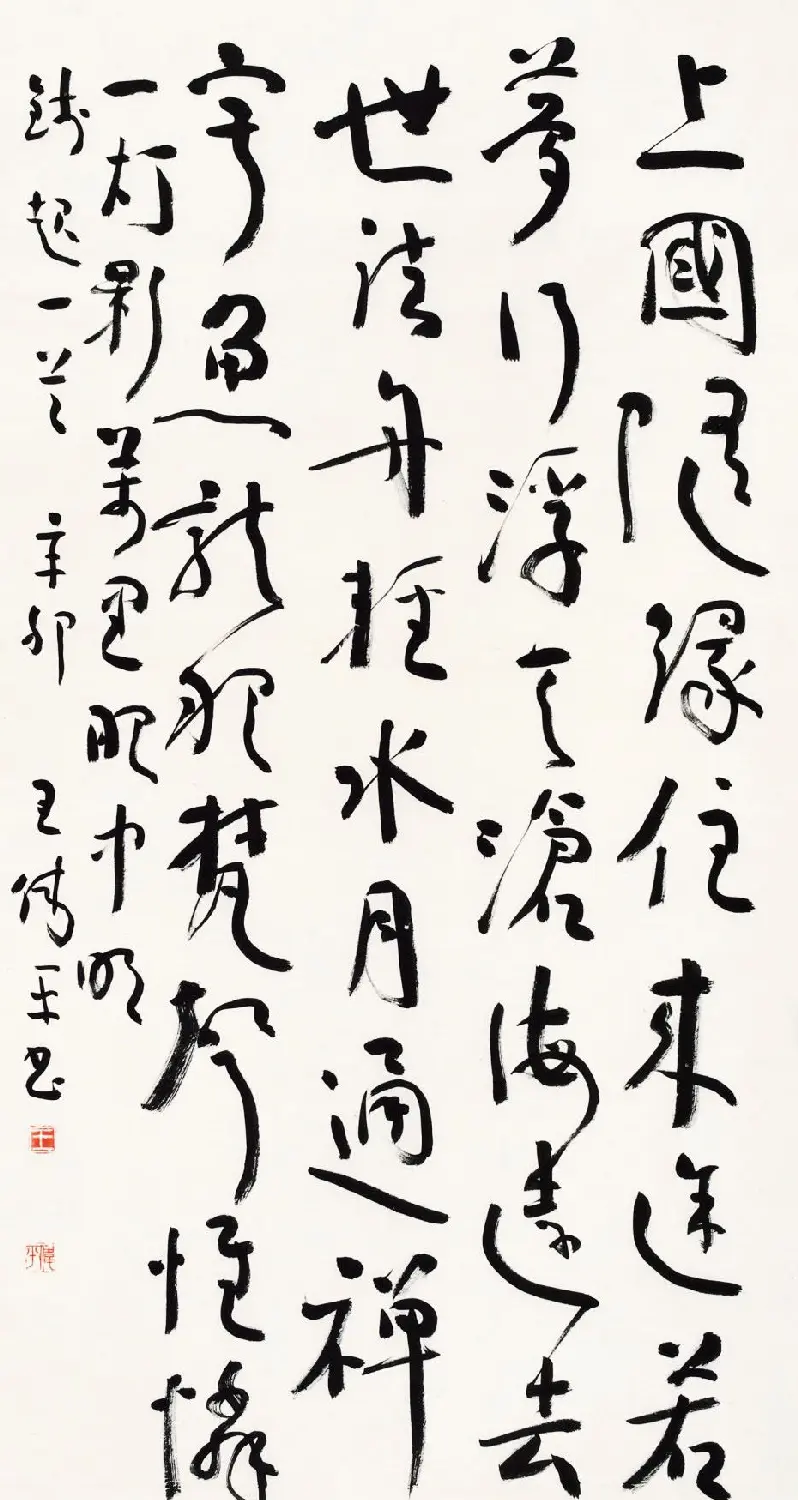 上國隨緣住來途若
夢行浮天滄海遠去
世法舟輕水月通禪
寂魚龍聽梵聲惟憐
一灯影萬里眼中明
錢起一首 辛卯 王偉平書
王
偉平